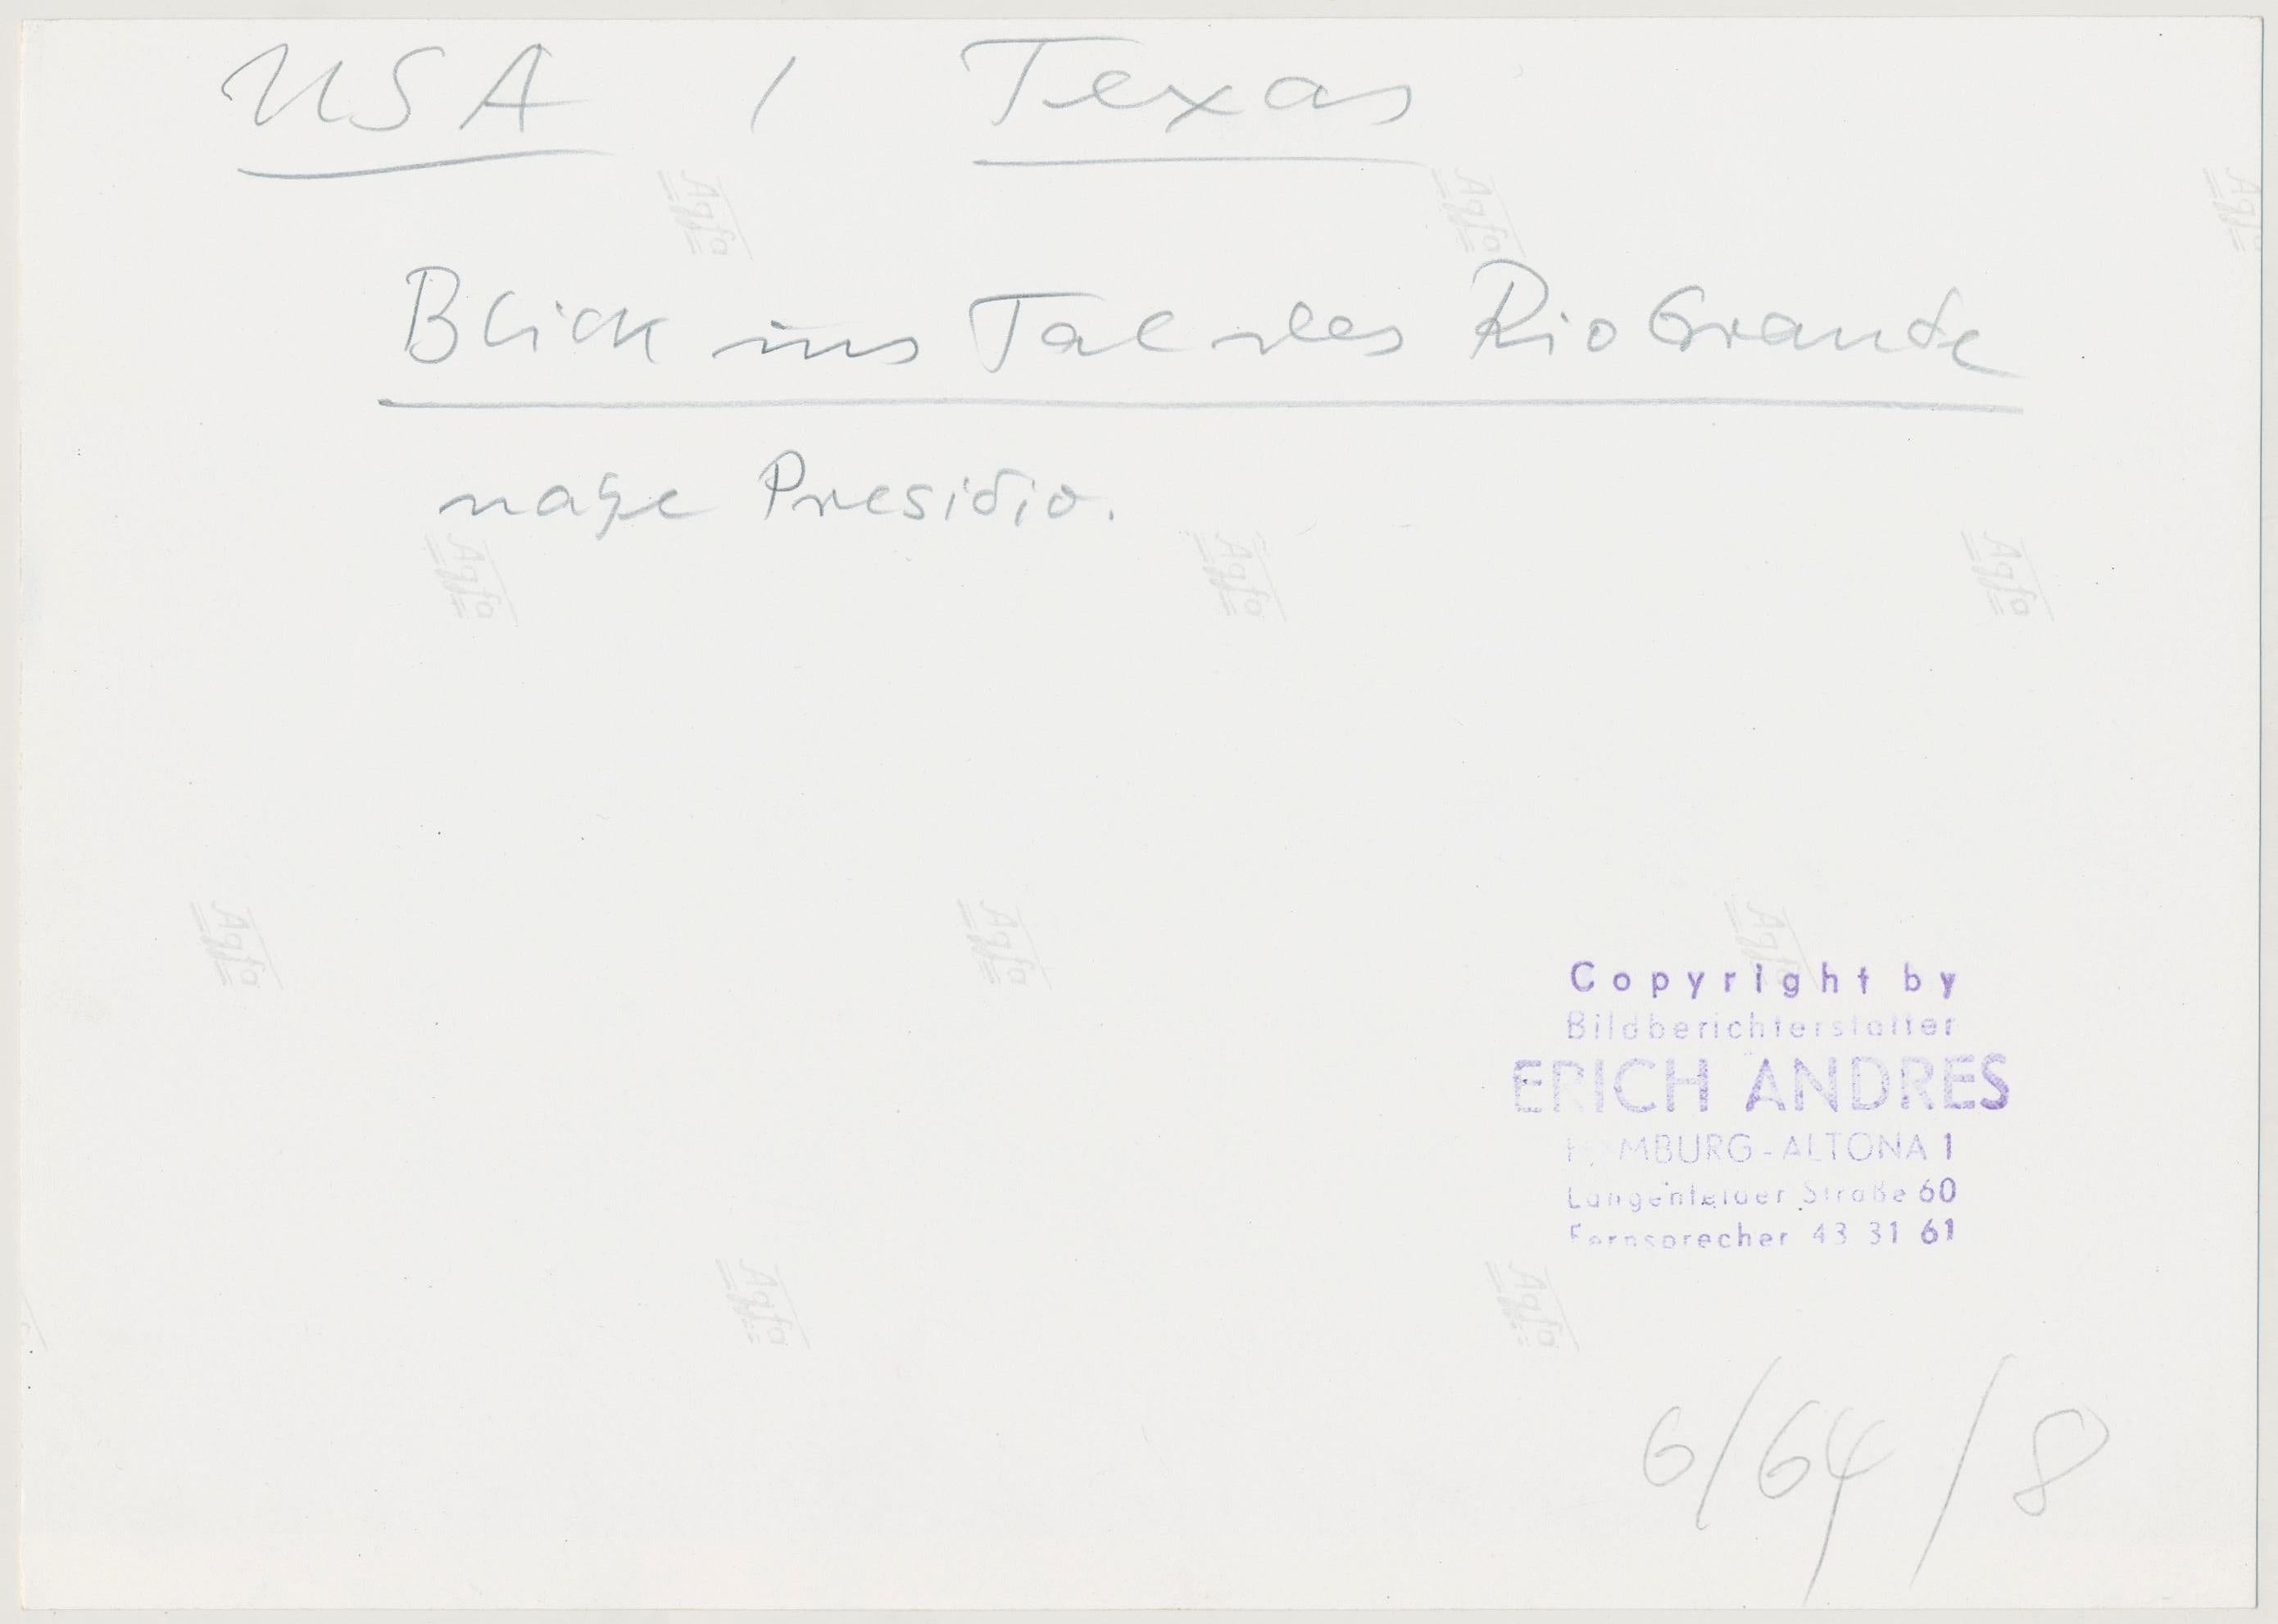 USA / Texas
Agfa Agfa Agfa
Blick ins Tal des Rio Grande
nahe Presidio.
Agfa Agfa Agfa
Agfa Agfa Agfa
Copyright by
Bildberichterstatter
ERICH ANDRES
HAMBURG-ALTONA 1
Langenfelder Straße 60
Fernsprecher 43 31 61
Agfa Agfa
6/64/8